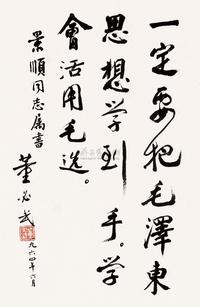 一定要把毛澤東
思想学到手。学
會活用毛选。
景順同志属書
董必武
一九六四年六月